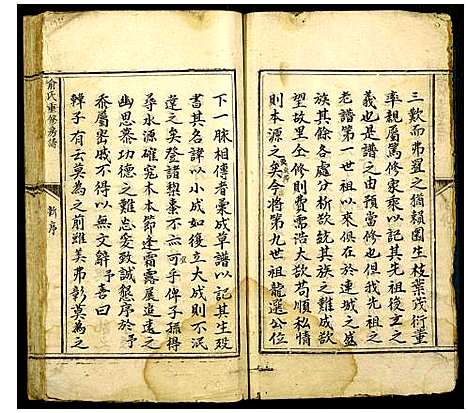 三歎而弗置之猶賴園生枝葉茂衍量
率親屬篤修家乘以記其先祖後立之
義也是譜之由預當修也但我先祖之
老譜第一世祖以來俱在於連城之大
族其餘各處分析欲統其族之難成欲
望故里全修則費需浩大欲苟順私情
則本源之矣今將第九世祖龍選公位
下一脉相傳者栗成草譜以記其生殁
書其名諱以小成如後立大成則不泯
違之矣登諸梨棗不亦可乎俾子孫得
尋水源確寬木本節逢霜露展追遠之
幽思慕功德之難忘爰致誠懇序於予
忝屬密戚不得以無文辭予喜曰
韓子有云莫為之前雖美弗彰莫為之
俞氏重修房譜
新序